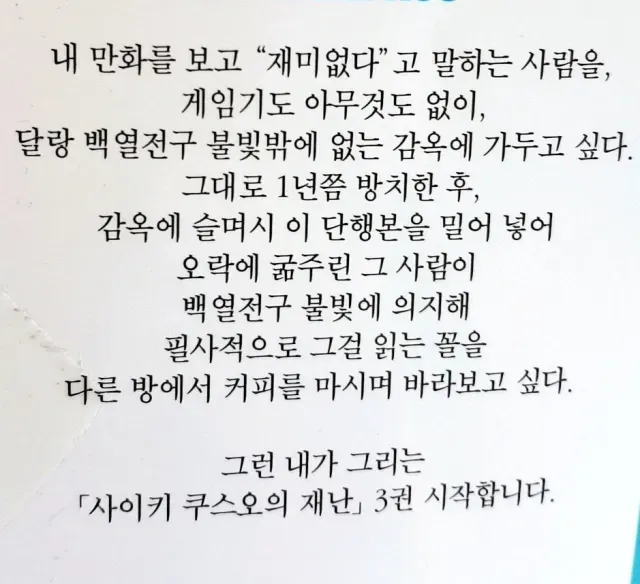 내 만화를 보고 “재미없다”고 말하는 사람을,
게임기도 아무것도 없이,
달랑 백열전구 불빛밖에 없는 감옥에 가두고 싶다.
그대로 1년쯤 방치한 후,
감옥에 슬며시 이 단행본을 밀어 넣어
오락에 굶주린 그 사람이
백열전구 불빛에 의지해
필사적으로 그걸 읽는 꼴을
다른 방에서 커피를 마시며 바라보고 싶다.
그런 내가 그리는
「사이키 쿠스오의 재난」 3권 시작합니다.